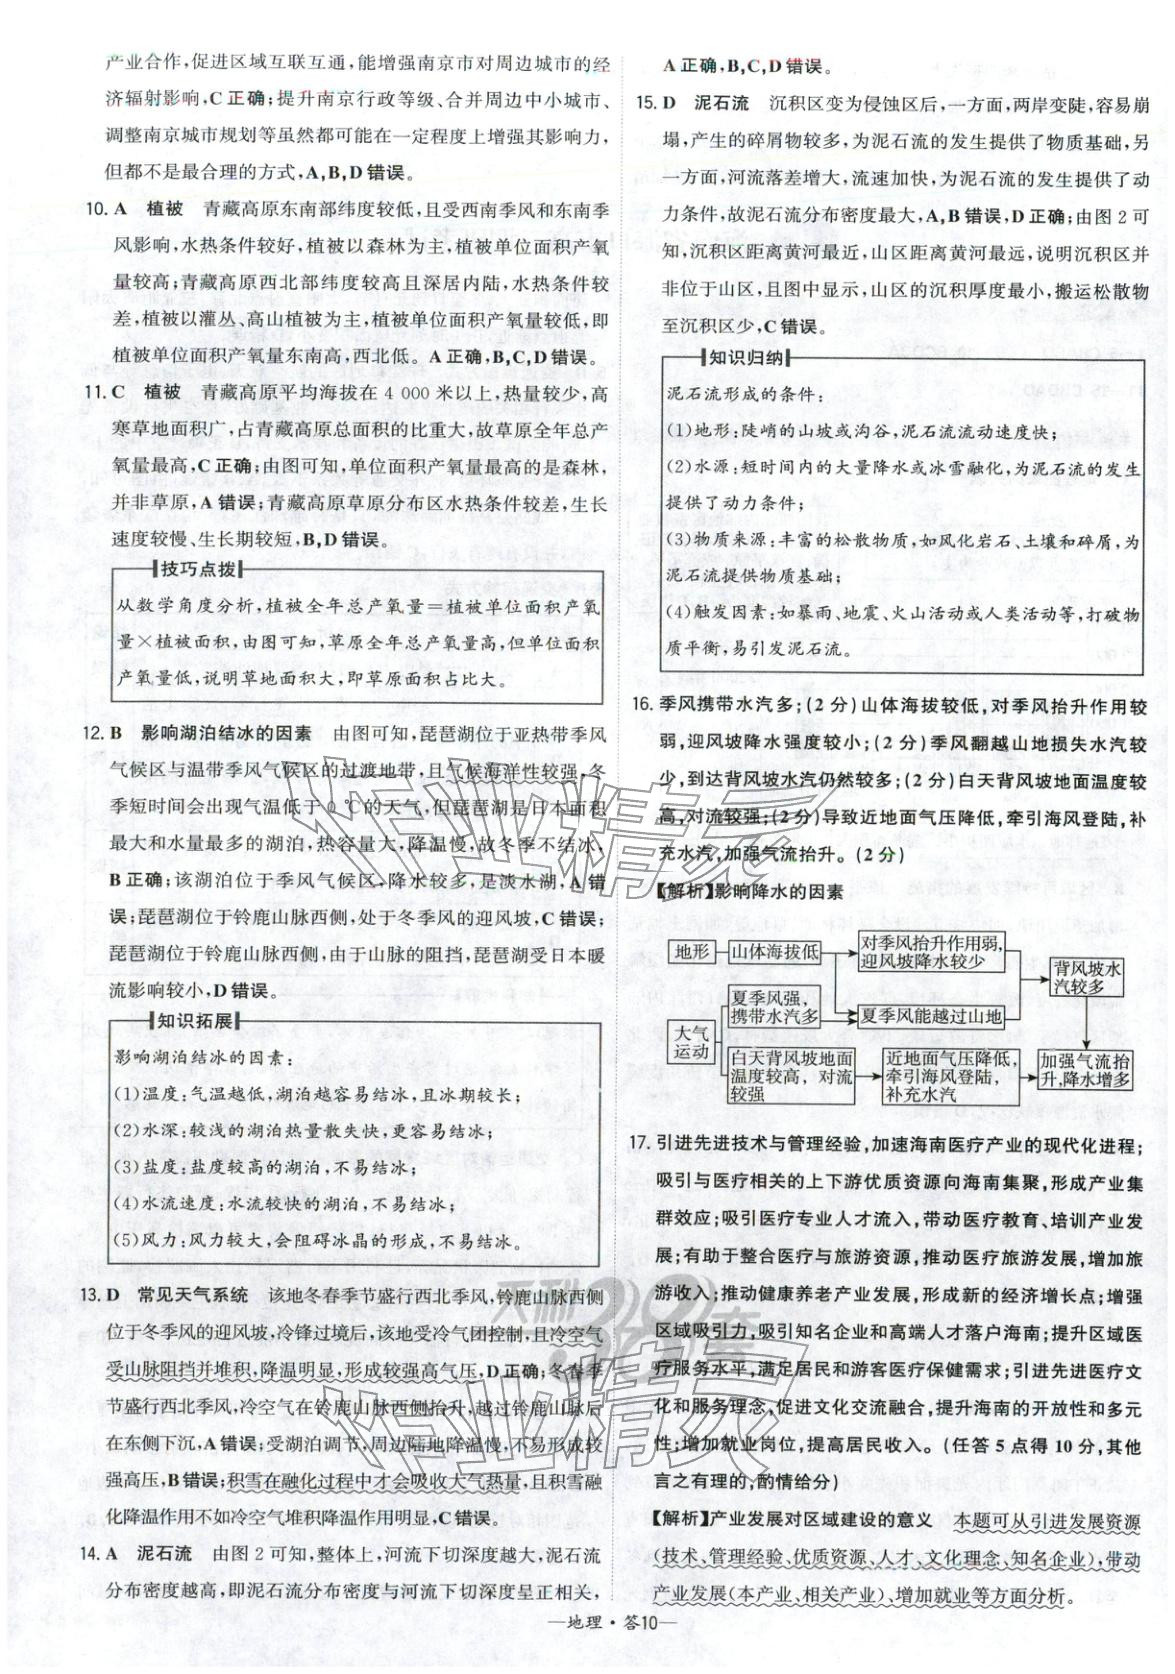 产业合作,促进区域互联互通,能增强南京市对周边城市的经
济辐射影响,C正确;提升南京行政等级、合并周边中小城市、
调整南京城市规划等虽然都可能在一定程度上增强其影响力,
但都不是最合理的方式,A,B,D错误。
10. A 植被 青藏高原东南部纬度较低,且受西南季风和东南季
风影响,水热条件较好,植被以森林为主,植被单位面积产氧
量较高;青藏高原西北部纬度较高且深居内陆,水热条件较
差,植被以灌丛、高山植被为主,植被单位面积产氧量较低,即
植被单位面积产氧量东南高,西北低。A正确,B,C,D错误。
11. C 植被 青藏高原平均海拔在4 000米以上,热量较少,高
寒草地面积广,占青藏高原总面积的比重大,故草原全年总产
氧量最高,C正确;由图可知,单位面积产氧量最高的是森林,
并非草原,A错误;青藏高原草原分布区水热条件较差,生长
速度较慢、生长期较短,B,D错误。
技巧点拨
从数学角度分析,植被全年总产氧量=植被单位面积产氧
量×植被面积,由图可知,草原全年总产氧量高,但单位面积
产氧量低,说明草地面积大,即草原面积占比大。
12. B 影响湖泊结冰的因素 由图可知,琵琶湖位于亚热带季风
气候区与温带季风气候区的过渡地带,且气候海洋性较强,冬
季短时间会出现气温低于0 ℃的天气,但琵琶湖是日本面积
最大和水量最多的湖泊,热容量大,降温慢,故冬季不结冰,
B正确;该湖泊位于季风气候区,降水较多,是淡水湖,A错
误;琵琶湖位于铃鹿山脉西侧,处于冬季风的迎风坡,C错误;
琵琶湖位于铃鹿山脉西侧,由于山脉的阻挡,琵琶湖受日本暖
流影响较小,D错误。
知识拓展
影响湖泊结冰的因素:
(1)温度:气温越低,湖泊越容易结冰,且冰期较长;
(2)水深:较浅的湖泊热量散失快,更容易结冰;
(3)盐度:盐度较高的湖泊,不易结冰;
(4)水流速度:水流较快的湖泊,不易结冰;
(5)风力:风力较大,会阻碍冰晶的形成,不易结冰。
13. D 常见天气系统 该地冬春季节盛行西北季风,铃鹿山脉西侧
位于冬季风的迎风坡,冷锋过境后,该地受冷气团控制,且冷空气
受山脉阻挡并堆积,降温明显,形成较强高气压,D正确;冬春季
节盛行西北季风,冷空气在铃鹿山脉西侧抬升,越过铃鹿山脉后
在东侧下沉,A错误;受湖泊调节,周边陆地降温慢,不易形成较
强高压,B错误;积雪在融化过程中才会吸收大气热量,且积雪融
化降温作用不如冷空气堆积降温作用明显,C错误。
14. A 泥石流 由图2可知,整体上,河流下切深度越大,泥石流
分布密度越高,即泥石流分布密度与河流下切深度呈正相关,
A正确,B,C,D错误。
15. D 泥石流 沉积区变为侵蚀区后,一方面,两岸变陡,容易崩
塌,产生的碎屑物较多,为泥石流的发生提供了物质基础,另
一方面,河流落差增大,流速加快,为泥石流的发生提供了动
力条件,故泥石流分布密度最大,A,B错误,D正确;由图2可
知,沉积区距离黄河最近,山区距离黄河最远,说明沉积区并
非位于山区,且图中显示,山区的沉积厚度最小,搬运松散物
至沉积区少,C错误。
知识归纳
泥石流形成的条件:
(1)地形:陡峭的山坡或沟谷,泥石流流动速度快;
(2)水源:短时间内的大量降水或冰雪融化,为泥石流的发生
提供了动力条件;
(3)物质来源:丰富的松散物质,如风化岩石、土壤和碎屑,为
泥石流提供物质基础;
(4)触发因素:如暴雨、地震、火山活动或人类活动等,打破物
质平衡,易引发泥石流。
16. 季风携带水汽多;(2分)山体海拔较低,对季风抬升作用较
弱,迎风坡降水强度较小;(2分)季风翻越山地损失水汽较
少,到达背风坡水汽仍然较多;(2分)白天背风坡地面温度较
高,对流较强;(2分)导致近地面气压降低,牵引海风登陆,补
充水汽,加强气流抬升。(2分)
【解析】影响降水的因素
地形
山体海拔低
对季风抬升作用弱,
迎风坡降水较少
背风坡水
汽较多
大气
运动
夏季风强,
携带水汽多
夏季风能越过山地
白天背风坡地面
温度较高,对流
较强
近地面气压降低,
牵引海风登陆,
补充水汽
加强气流抬
升,降水增多
17. 引进先进技术与管理经验,加速海南医疗产业的现代化进程;
吸引与医疗相关的上下游优质资源向海南集聚,形成产业集
群效应;吸引医疗专业人才流入,带动医疗教育、培训产业发
展;有助于整合医疗与旅游资源,推动医疗旅游发展,增加旅
游收入;推动健康养老产业发展,形成新的经济增长点;增强
区域吸引力,吸引知名企业和高端人才落户海南;提升区域医
疗服务水平,满足居民和游客医疗保健需求;引进先进医疗文
化和服务理念,促进文化交流融合,提升海南的开放性和多元
性;增加就业岗位,提高居民收入。(任答5点得10分,其他
言之有理的,酌情给分)
【解析】产业发展对区域建设的意义 本题可从引进发展资源
(技术、管理经验、优质资源、人才、文化理念、知名企业),带动
产业发展(本产业、相关产业)、增加就业等方面分析。
—地理·答10—
作业精灵
天利38套
作业精灵